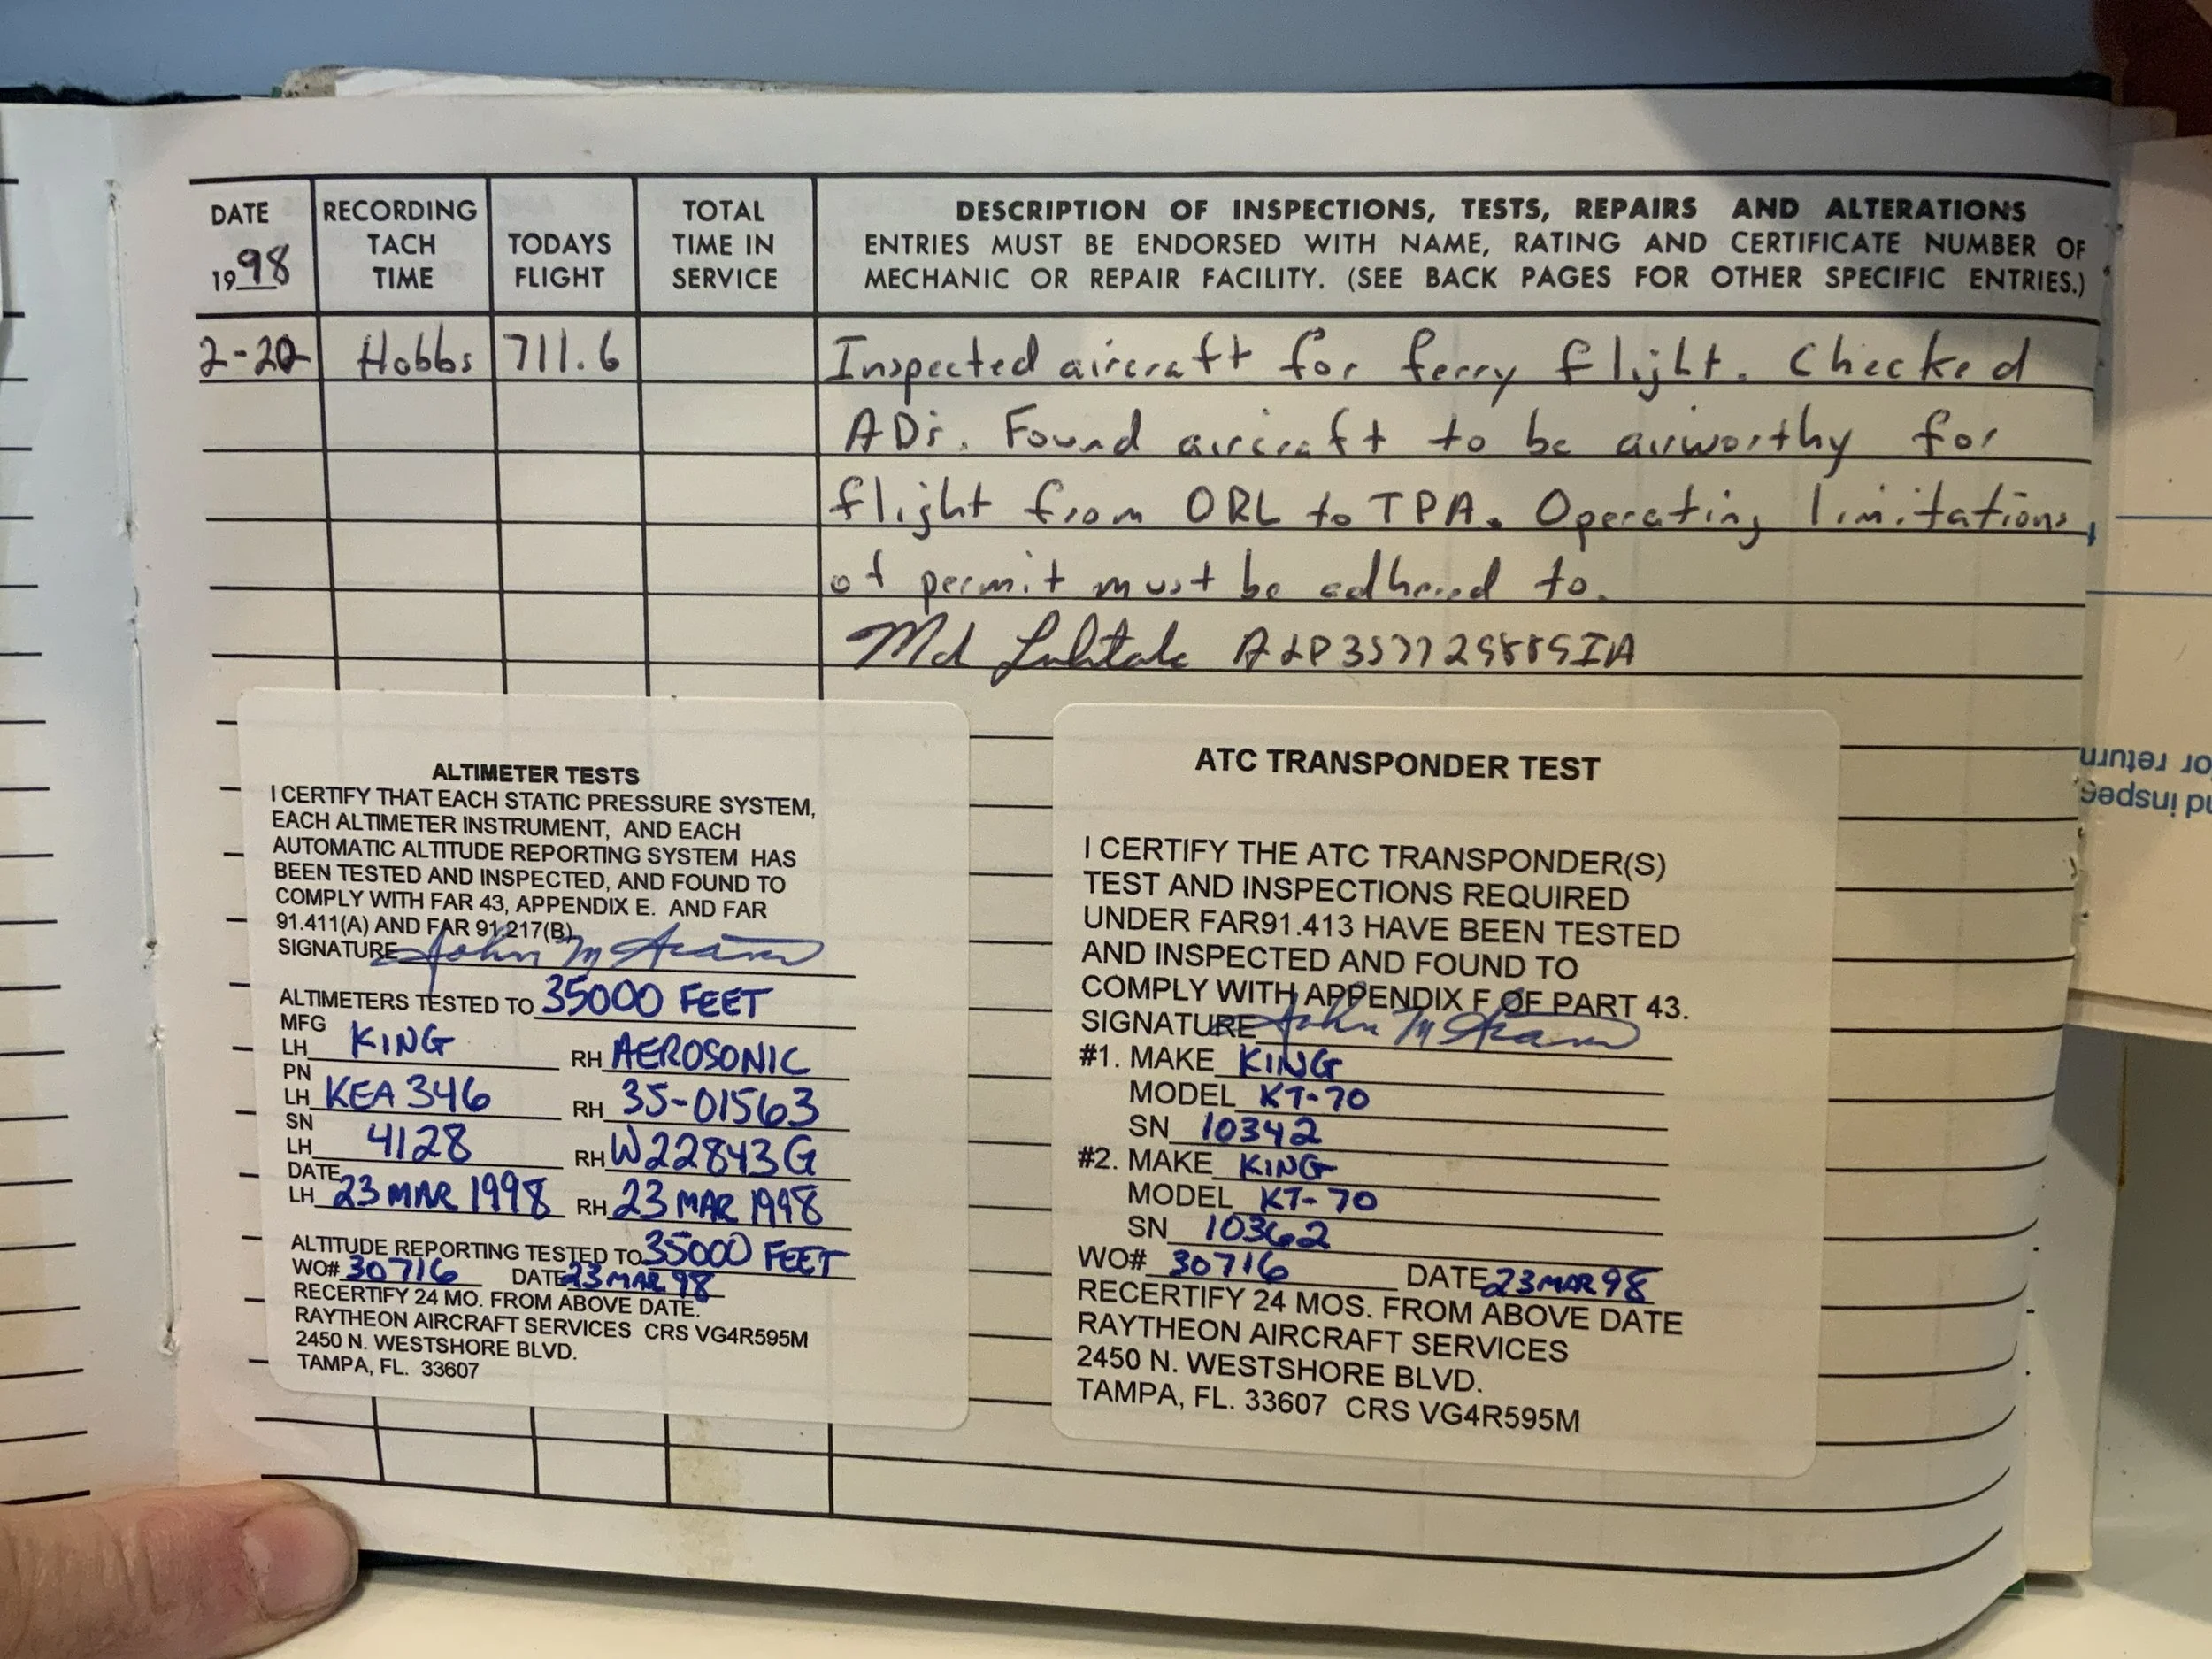 DATE
1998
RECORDING
TACH
TIME
TODAYS
FLIGHT
TOTAL
TIME IN
SERVICE
DESCRIPTION OF INSPECTIONS, TESTS, REPAIRS AND ALTERATIONS
ENTRIES MUST BE ENDORSED WITH NAME, RATING AND CERTIFICATE NUMBER OF
MECHANIC OR REPAIR FACILITY. (SEE BACK PAGES FOR OTHER SPECIFIC ENTRIES.)
2-20 Hobbs 711.6 Inspected aircraft for ferry flight. Checked
ADs. Found aircraft to be airworthy for
flight from ORL to TPA. Operating limitations
of permit must be adhered to.
ALTIMETER TESTS
I CERTIFY THAT EACH STATIC PRESSURE SYSTEM,
EACH ALTIMETER INSTRUMENT, AND EACH
AUTOMATIC ALTITUDE REPORTING SYSTEM HAS
BEEN TESTED AND INSPECTED, AND FOUND TO
COMPLY WITH FAR 43, APPENDIX E. AND FAR
91.411(A) AND FAR 91.217(B)
SIGNATURE John
ALTIMETERS TESTED TO 35000 FEET
MFG
LH KING RH AEROSONIC
PN
LH KEA 346 RH 35-01563
SN
LH 4128 RH W22843G
DATE
LH 23 MAR 1998 RH 23 MAR 1998
ALTITUDE REPORTING TESTED TO 35000 FEET
WO# 30716 DATE 23 MAR 98
RECERTIFY 24 MO. FROM ABOVE DATE.
RAYTHEON AIRCRAFT SERVICES CRS VG4R595M
2450 N. WESTSHORE BLVD.
TAMPA, FL. 33607
ATC TRANSPONDER TEST
I CERTIFY THE ATC TRANSPONDER(S)
TEST AND INSPECTIONS REQUIRED
UNDER FAR91.413 HAVE BEEN TESTED
AND INSPECTED AND FOUND TO
COMPLY WITH APPENDIX F OF PART 43.
SIGNATURE John
#1. MAKE KING
MODEL KT-70
SN 10342
#2. MAKE KING
MODEL KT-70
SN 10362
WO# 30716 DATE 23 MAR 98
RECERTIFY 24 MOS. FROM ABOVE DATE
RAYTHEON AIRCRAFT SERVICES
2450 N. WESTSHORE BLVD.
TAMPA, FL. 33607 CRS VG4R595M
return